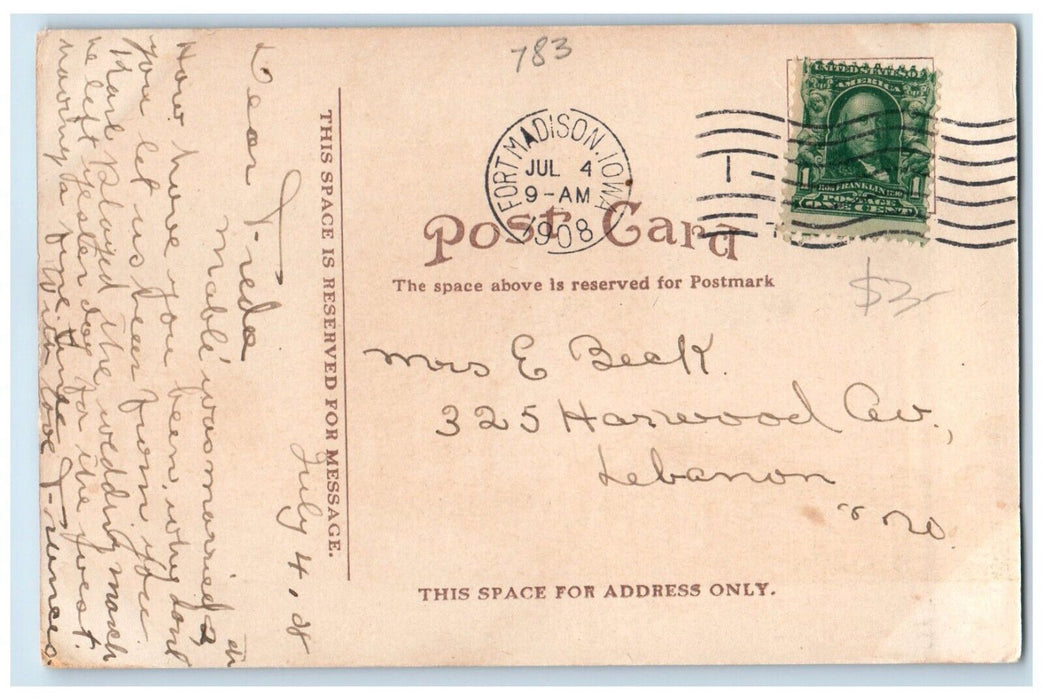 783
FORT MADISON. IOWA
JUL 4
9-AM
1908
UNITED STATES OF
AMERICA
1
FRANKLIN
POSTAGE
ONE CENT
Post Card
The space above is reserved for Postmark
$3-
Mrs E Beck.
325 Harwood Av.,
Lebanon
Mo
THIS SPACE FOR ADDRESS ONLY.
THIS SPACE IS RESERVED FOR MESSAGE.
July 4, 08
Dear Freda
Mable was married
How have you been, why dont
you let us hear from you
Played the wedding march
he left yesterday for the west.
having a fine time
With love Frances.